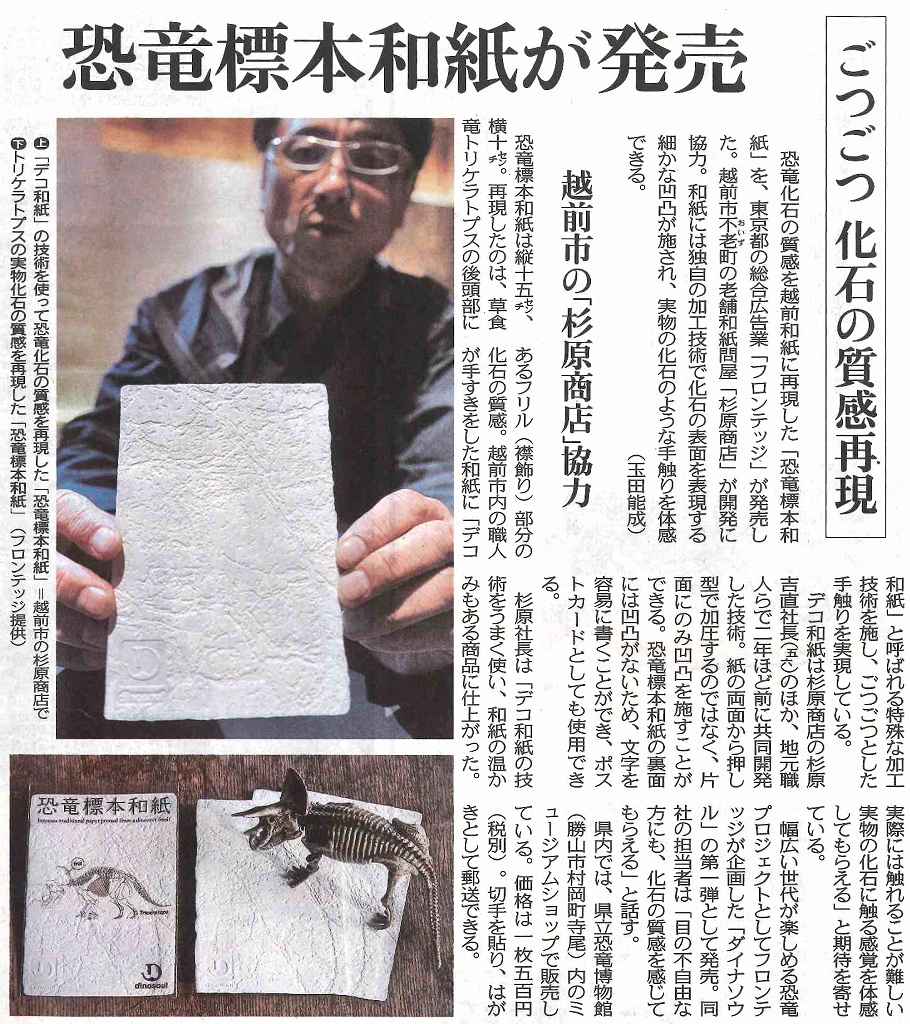 恐竜標本和紙が発売
ごつごつ 化石の質感再現
恐竜化石の質感を越前和紙に再現した「恐竜標本和
紙」を、東京都の総合広告業「フロンテッジ」が発売し
た。越前市不老町の老舗和紙問屋「杉原商店」が開発に
おいず
協力。和紙には独自の加工技術で化石の表面を表現する
細かな凹凸が施され、実物の化石のような手触りを体感
できる。
(玉田能成)
越前市の「杉原商店」協力
恐竜標本和紙は縦十五㌢、
横十㌢。再現したのは、草食
竜トリケラトプスの後頭部に
あるフリル(襟飾り)部分の
化石の質感。越前市内の職人
が手すきをした和紙に「デコ
和紙」と呼ばれる特殊な加工
技術を施し、ごつごつとした
手触りを実現している。
デコ和紙は杉原商店の杉原
吉直社長(五七)のほか、地元職
人らで二年ほど前に共同開発
した技術。紙の両面から押し
型で加圧するのではなく、片
面にのみ凹凸を施すことが
できる。恐竜標本和紙の裏面
には凹凸がないため、文字を
容易に書くことができ、ポス
トカードとしても使用でき
る。
杉原社長は「デコ和紙の技
術をうまく使い、和紙の温か
みもある商品に仕上がった。
実際には触れることが難しい
実物の化石に触る感覚を体感
してもらえる」と期待を寄せ
ている。
幅広い世代が楽しめる恐竜
プロジェクトとしてフロンテ
ッジが企画した「ダイナソウ
ル」の第一弾として発売。同
社の担当者は「目の不自由な
方にも、化石の質感を感じて
もらえる」と話す。
県内では、県立恐竜博物館
(勝山市村岡町寺尾)内のミ
ュージアムショップで販売し
ている。価格は一枚五百円
(税別)。切手を貼り、はが
きとして郵送できる。
上「デコ和紙」の技術を使って恐竜化石の質感を再現した「恐竜標本和紙」=越前市の杉原商店で
下トリケラトプスの実物化石の質感を再現した「恐竜標本和紙」(フロンテッジ提供)
恐竜標本和紙
Japanese traditional paper pressed from a dinosaur fossil
Triceratops
dinosoul